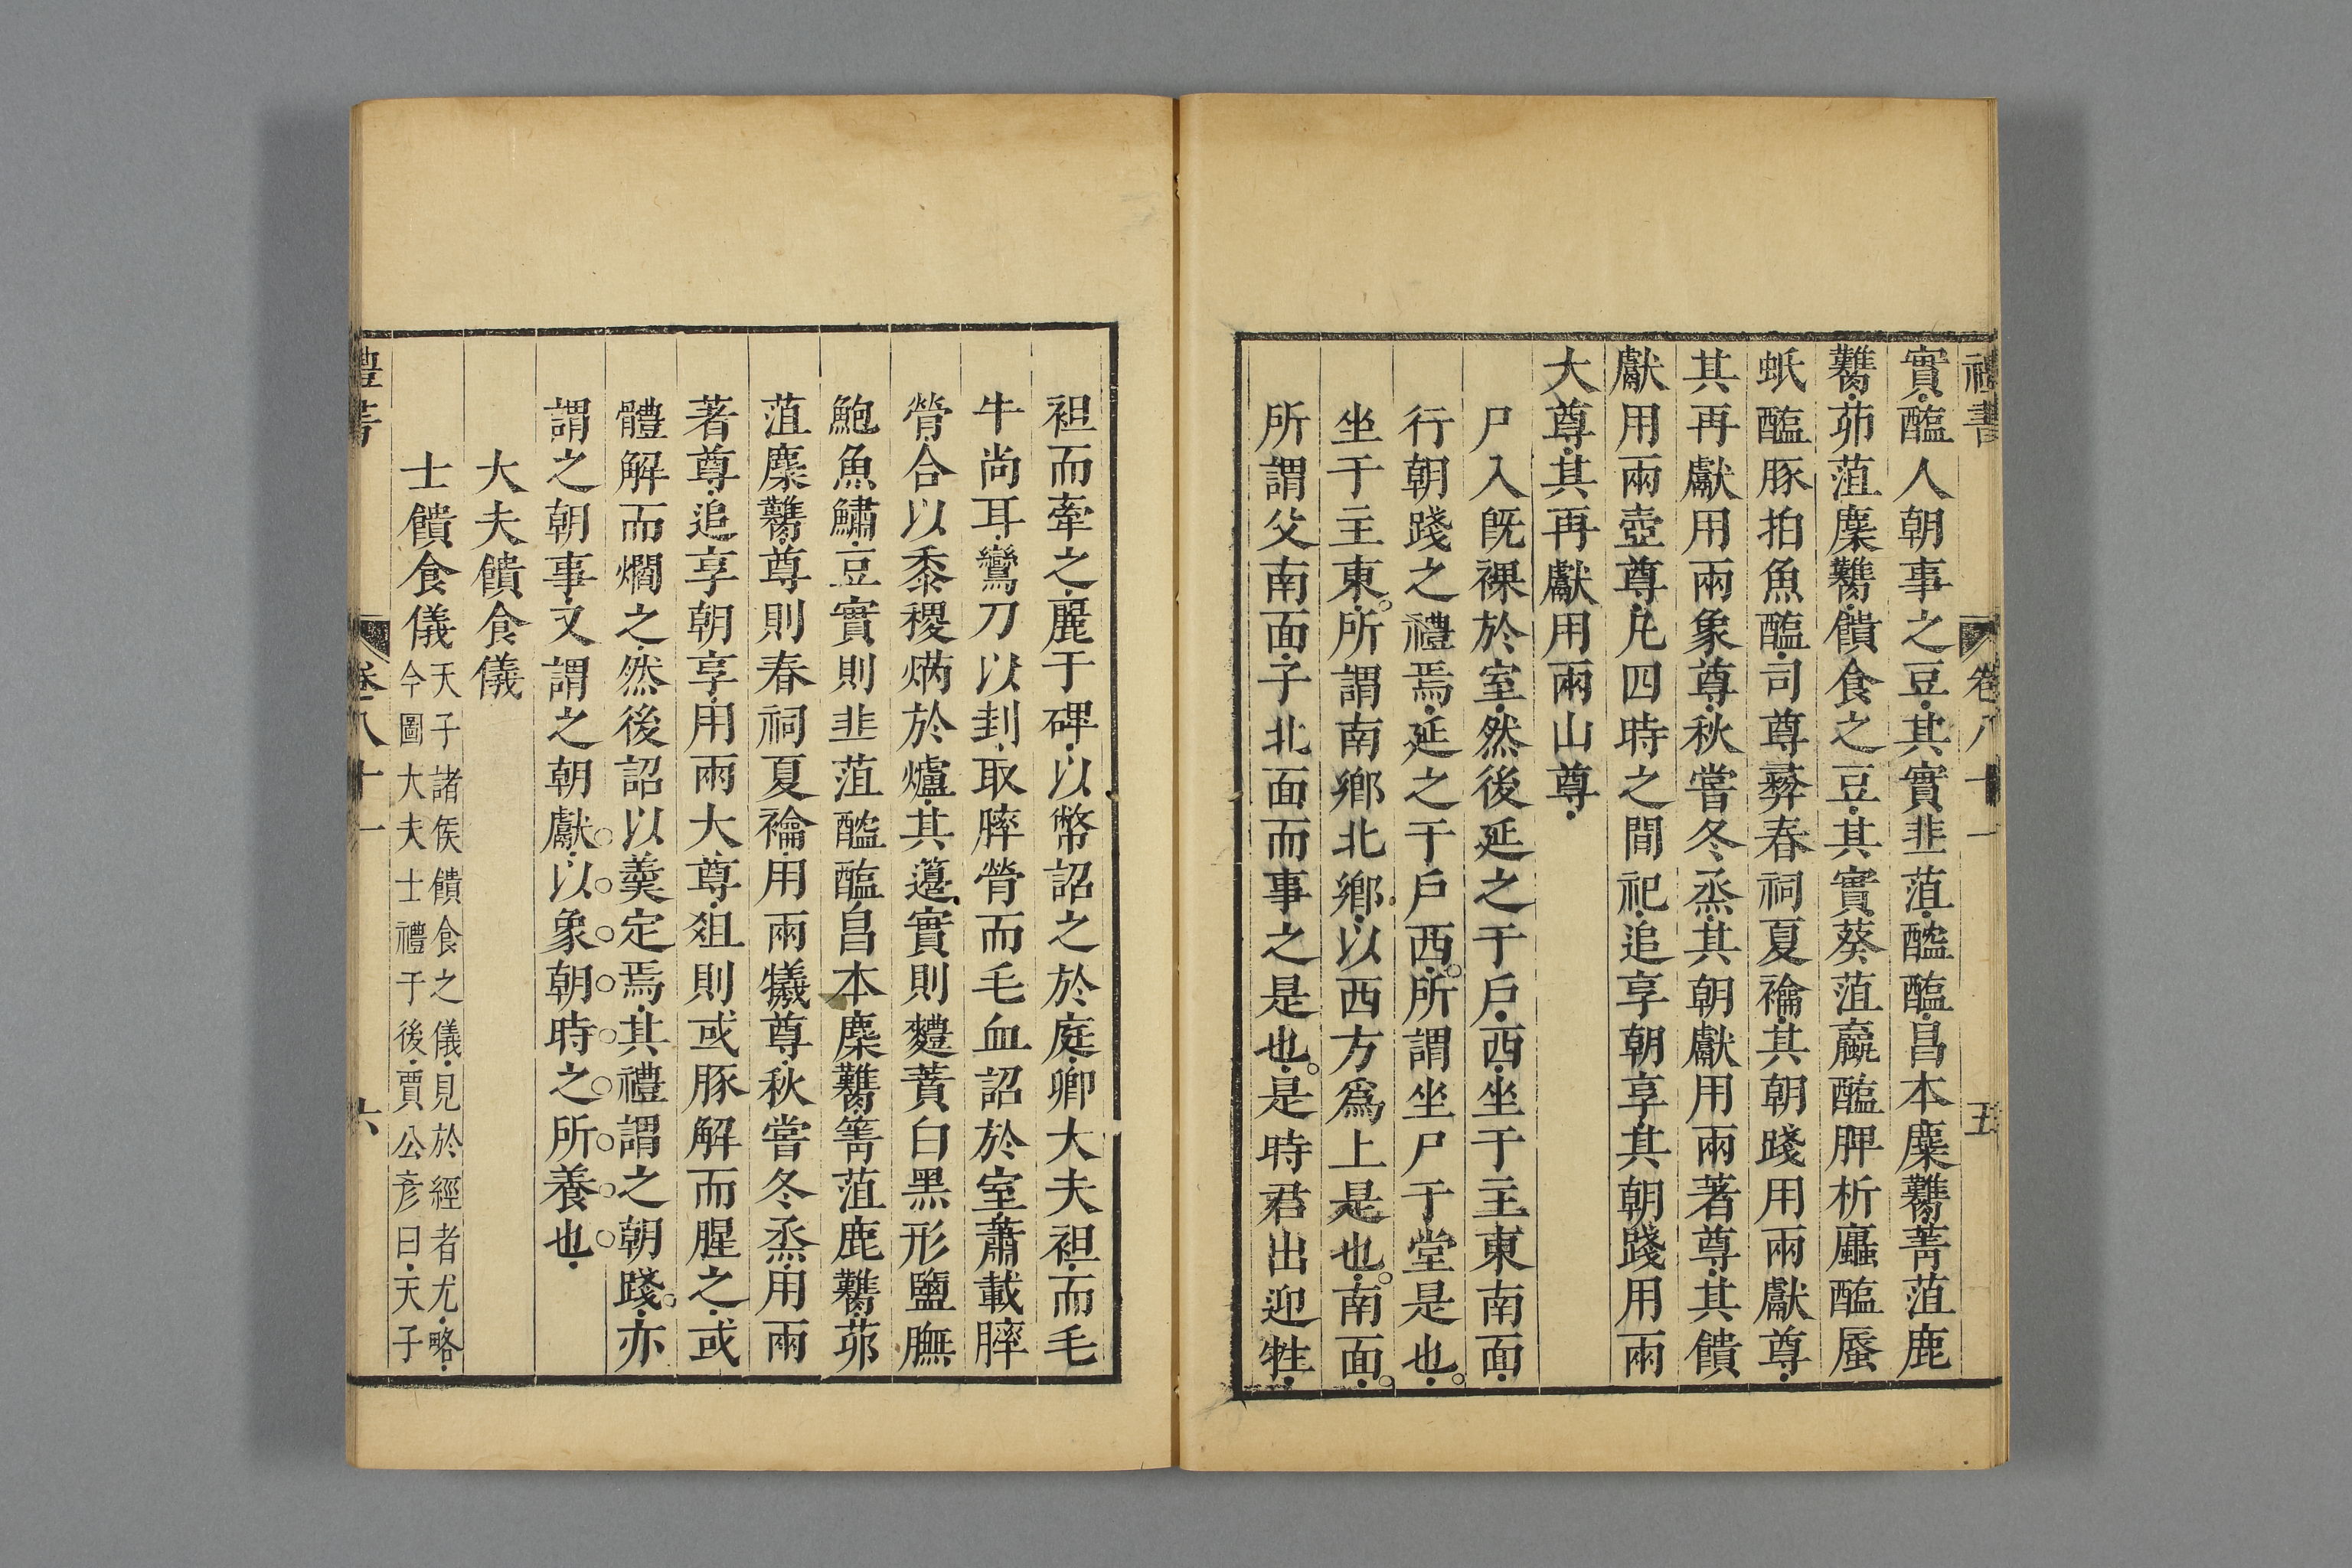 禮書
卷八十一
五
實醢人朝事之豆其實韭菹醓醢昌本麋臡菁菹鹿
臡茆菹麋臡饋食之豆其實葵菹蠃醢脾析蠯醢蜃
蚳醢豚拍魚醢司尊彝春祠夏禴其朝踐用兩獻尊
其再獻用兩象尊秋嘗冬烝其朝獻用兩著尊其饋
獻用兩壺尊凡四時之間祀追享朝享其朝踐用兩
大尊其再獻用兩山尊
尸入旣祼於室然後延之于戶西坐于主東南面
行朝踐之禮焉延之于戶西所謂坐尸于堂是也
坐于主東所謂南鄉北鄉以西方爲上是也南面
所謂父南面子北面而事之是也是時君出迎牲
袒而牽之麗于碑以幣詔之於庭卿大夫袒而毛
牛尚耳鸞刀以刲取膟膋而毛血詔於室蕭載膟
膋合以黍稷焫於爐其籩實則麷蕡白黑形鹽膴
鮑魚鱐豆實則韭菹醓醢昌本麋臡菁菹鹿臡茆
菹麋臡尊則春祠夏禴用兩犧尊秋嘗冬烝用兩
著尊追享朝享用兩大尊俎則或豚解而腥之或
體解而爓之然後詔以羹定焉其禮謂之朝踐亦
謂之朝事又謂之朝獻以象朝時之所養也
大夫饋食儀
士饋食儀天子諸侯饋食之儀見於經者尤略
今圖大夫士禮于後賈公彦曰天子
禮書
卷八十一
六